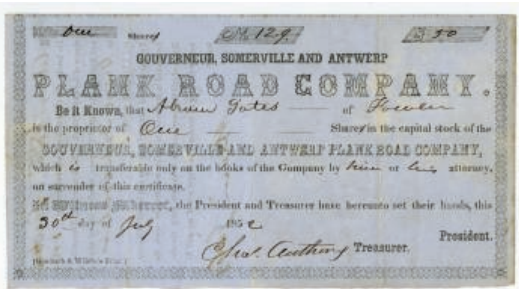 One Share No. 129. $ 50
GOUVERNEUR, SOMERVILLE AND ANTWERP
PLANK ROAD COMPANY.
Be it Known, that Abram Yates of Fowler
is the proprietor of One Share in the capital stock of the
GOUVERNEUR, SOMERVILLE AND ANTWERP PLANK ROAD COMPANY,
which is transferable only on the books of the Company by him or his attorney,
on surrender of this certificate.
In Witness Whereof, the President and Treasurer have hereunto set their hands, this
30th day of July 1852
President.
Chas. Anthony Treasurer.